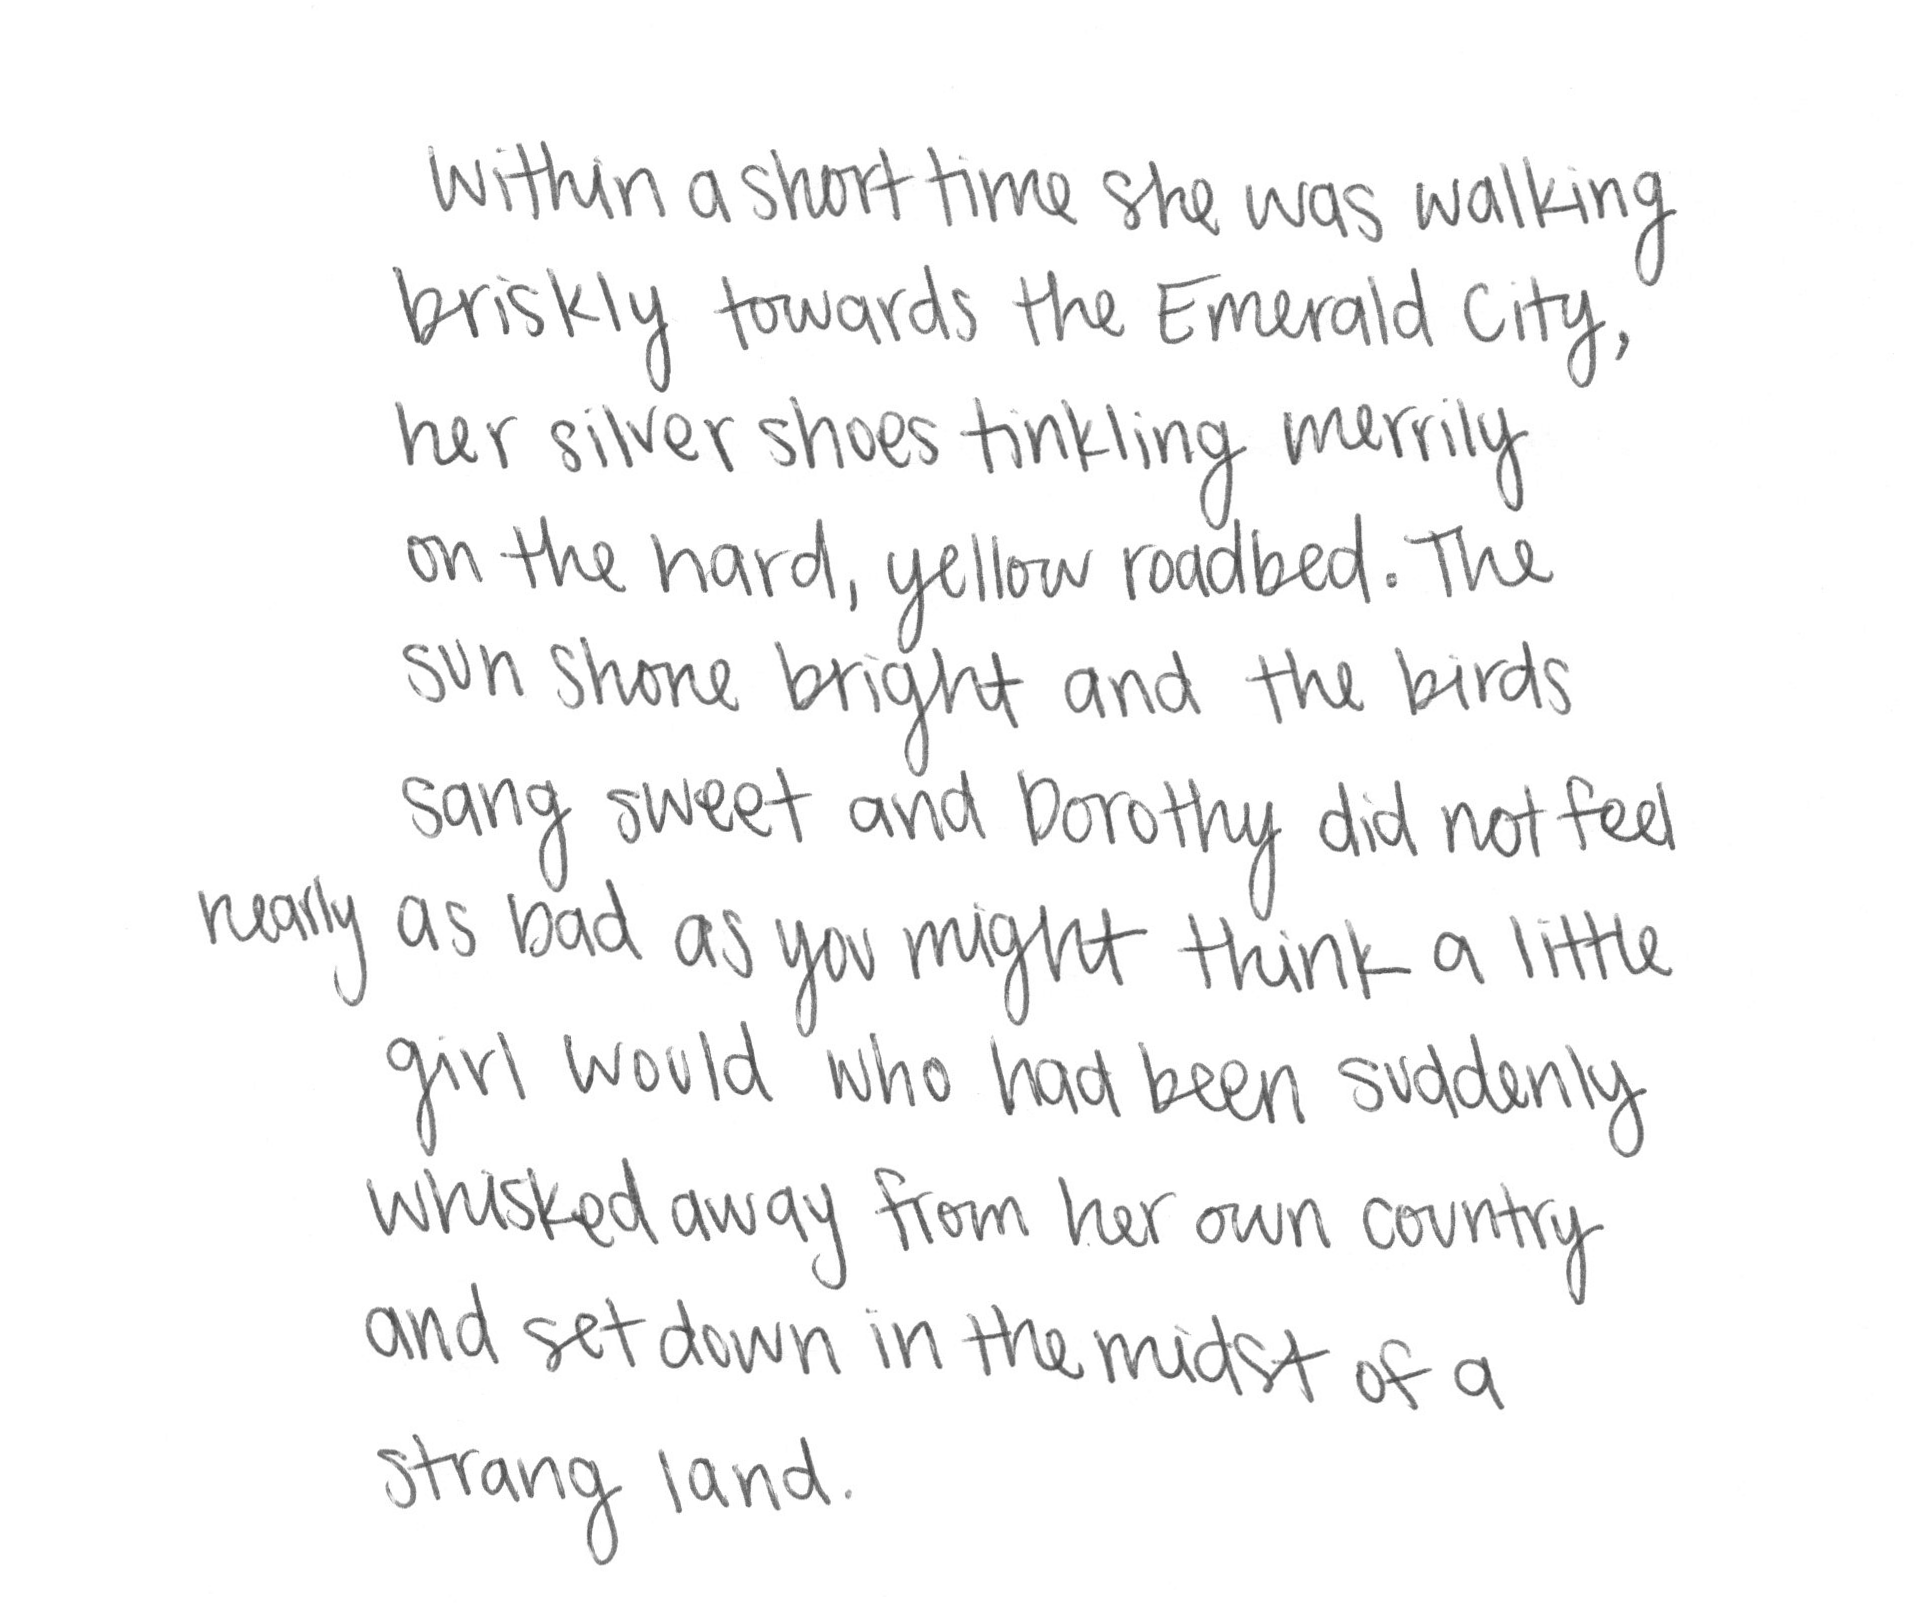 Within a short time she was walking
briskly towards the Emerald City,
her silver shoes tinkling merrily
on the hard, yellow roadbed. The
sun shone bright and the birds
sang sweet and Dorothy did not feel
nearly as bad as you might think a little
girl would who had been suddenly
whisked away from her own country
and set down in the midst of a
strang land.